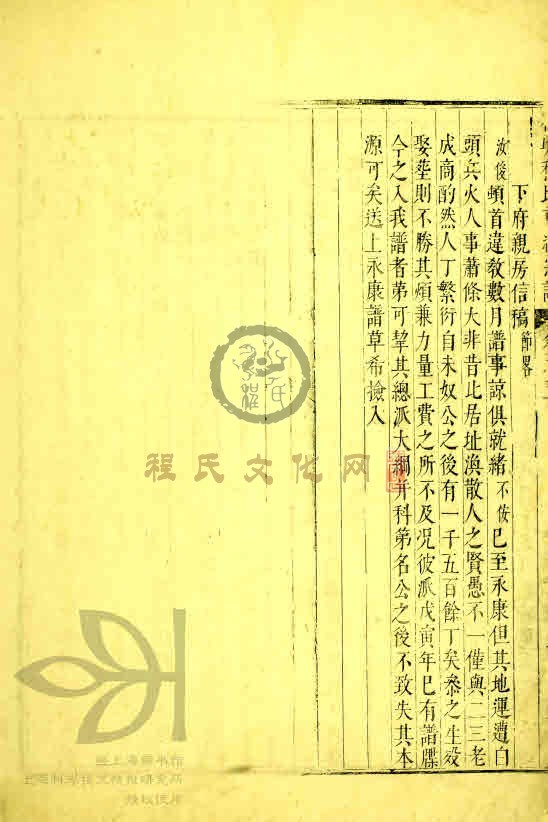 下府親房信稿節畧
汝俊頓首違教數月譜事諒俱就緒不佞已至永康但其地運遭白
頭兵火人事蕭條大非昔比居址渙散人之賢愚不一僅與二三老
成商酌然人丁繁衍自未奴公之後有一千五百餘丁矣叅之生殁
娶塟則不勝其煩兼力量工費之所不及况彼派戊寅年已有譜牒
今之入我譜者苐可挈其總派大綱并科第名公之後不致失其本
源可矣送上永康譜草希撿入
程氏文化网
上海圖書館